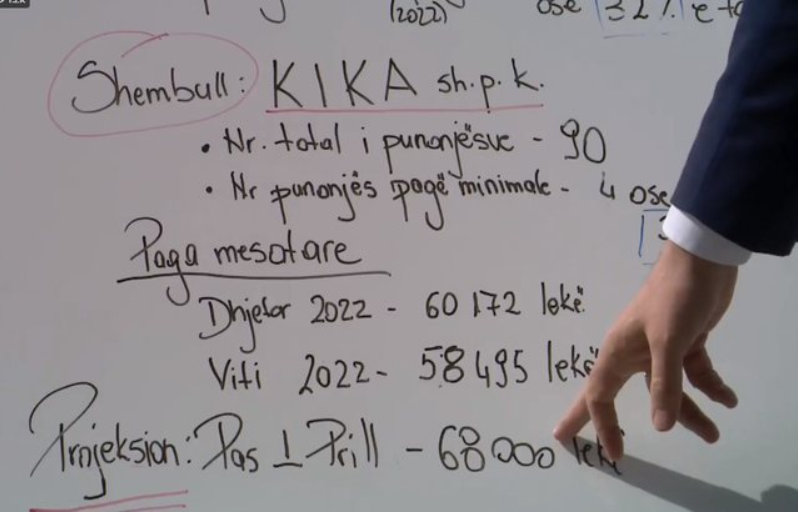 (2022) ose 32% e
Shembull: KIKA sh.p.k.
• Nr. total i punonjësve - 90
• Nr punonjës pagë minimale - 4 ose
Paga mesatare
Dhjetor 2022 - 60 172 lekë
Viti 2022 - 58 495 lekë
Projeksion: Pas 1 Prill - 68 000 lekë